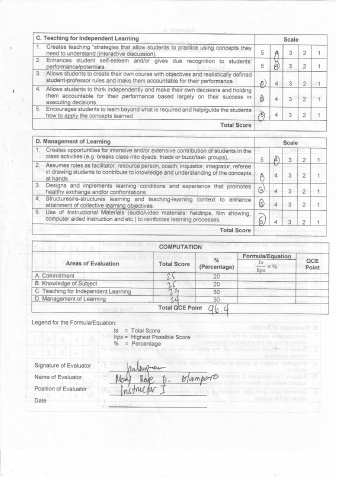 C. Teaching for Independent Learning Scale
1. Creates teaching strategies that allow students to practice using concepts they need to understand (interactive discussion). 5 4 3 2 1
2. Enhances student self-esteem and/or gives due recognition to students' performance/potentials. 5 4 3 2 1
3. Allows students to create their own course with objectives and realistically defined student-professor rules and make them accountable for their performance. 5 4 3 2 1
4. Allows students to think independently and make their own decisions and holding them accountable for their performance based largely on their success in executing decisions. 5 4 3 2 1
5. Encourages students to learn beyond what is required and help/guide the students how to apply the concepts learned 5 4 3 2 1
Total Score
D. Management of Learning Scale
1. Creates opportunities for intensive and/or extensive contribution of students in the class activities (e.g. breaks class into dyads, triads or buzz/task groups). 5 4 3 2 1
2. Assumes roles as facilitator, resource person, coach, inquisitor, integrator, referee in drawing students to contribute to knowledge and understanding of the concepts at hands. 5 4 3 2 1
3. Designs and implements learning conditions and experience that promotes healthy exchange and/or confrontations. 5 4 3 2 1
4. Structures/re-structures learning and teaching-learning context to enhance attainment of collective learning objectives. 5 4 3 2 1
5. Use of Instructional Materials (audio/video materials: fieldtrips, film showing, computer aided instruction and etc.) to reinforces learning processes. 5 4 3 2 1
Total Score
COMPUTATION
Areas of Evaluation Total Score % (Percentage) Formula/Equation ts/hps × % QCE Point
A. Commitment 25 20
B. Knowledge of Subject 25 20
C. Teaching for Independent Learning 23 30
D. Management of Learning 24 30
Total QCE Point 96.4
Legend for the Formula/Equation:
ts = Total Score
hps = Highest Possible Score
% = Percentage
Signature of Evaluator
Name of Evaluator Rose B.
Position of Evaluator Instructor I
Date